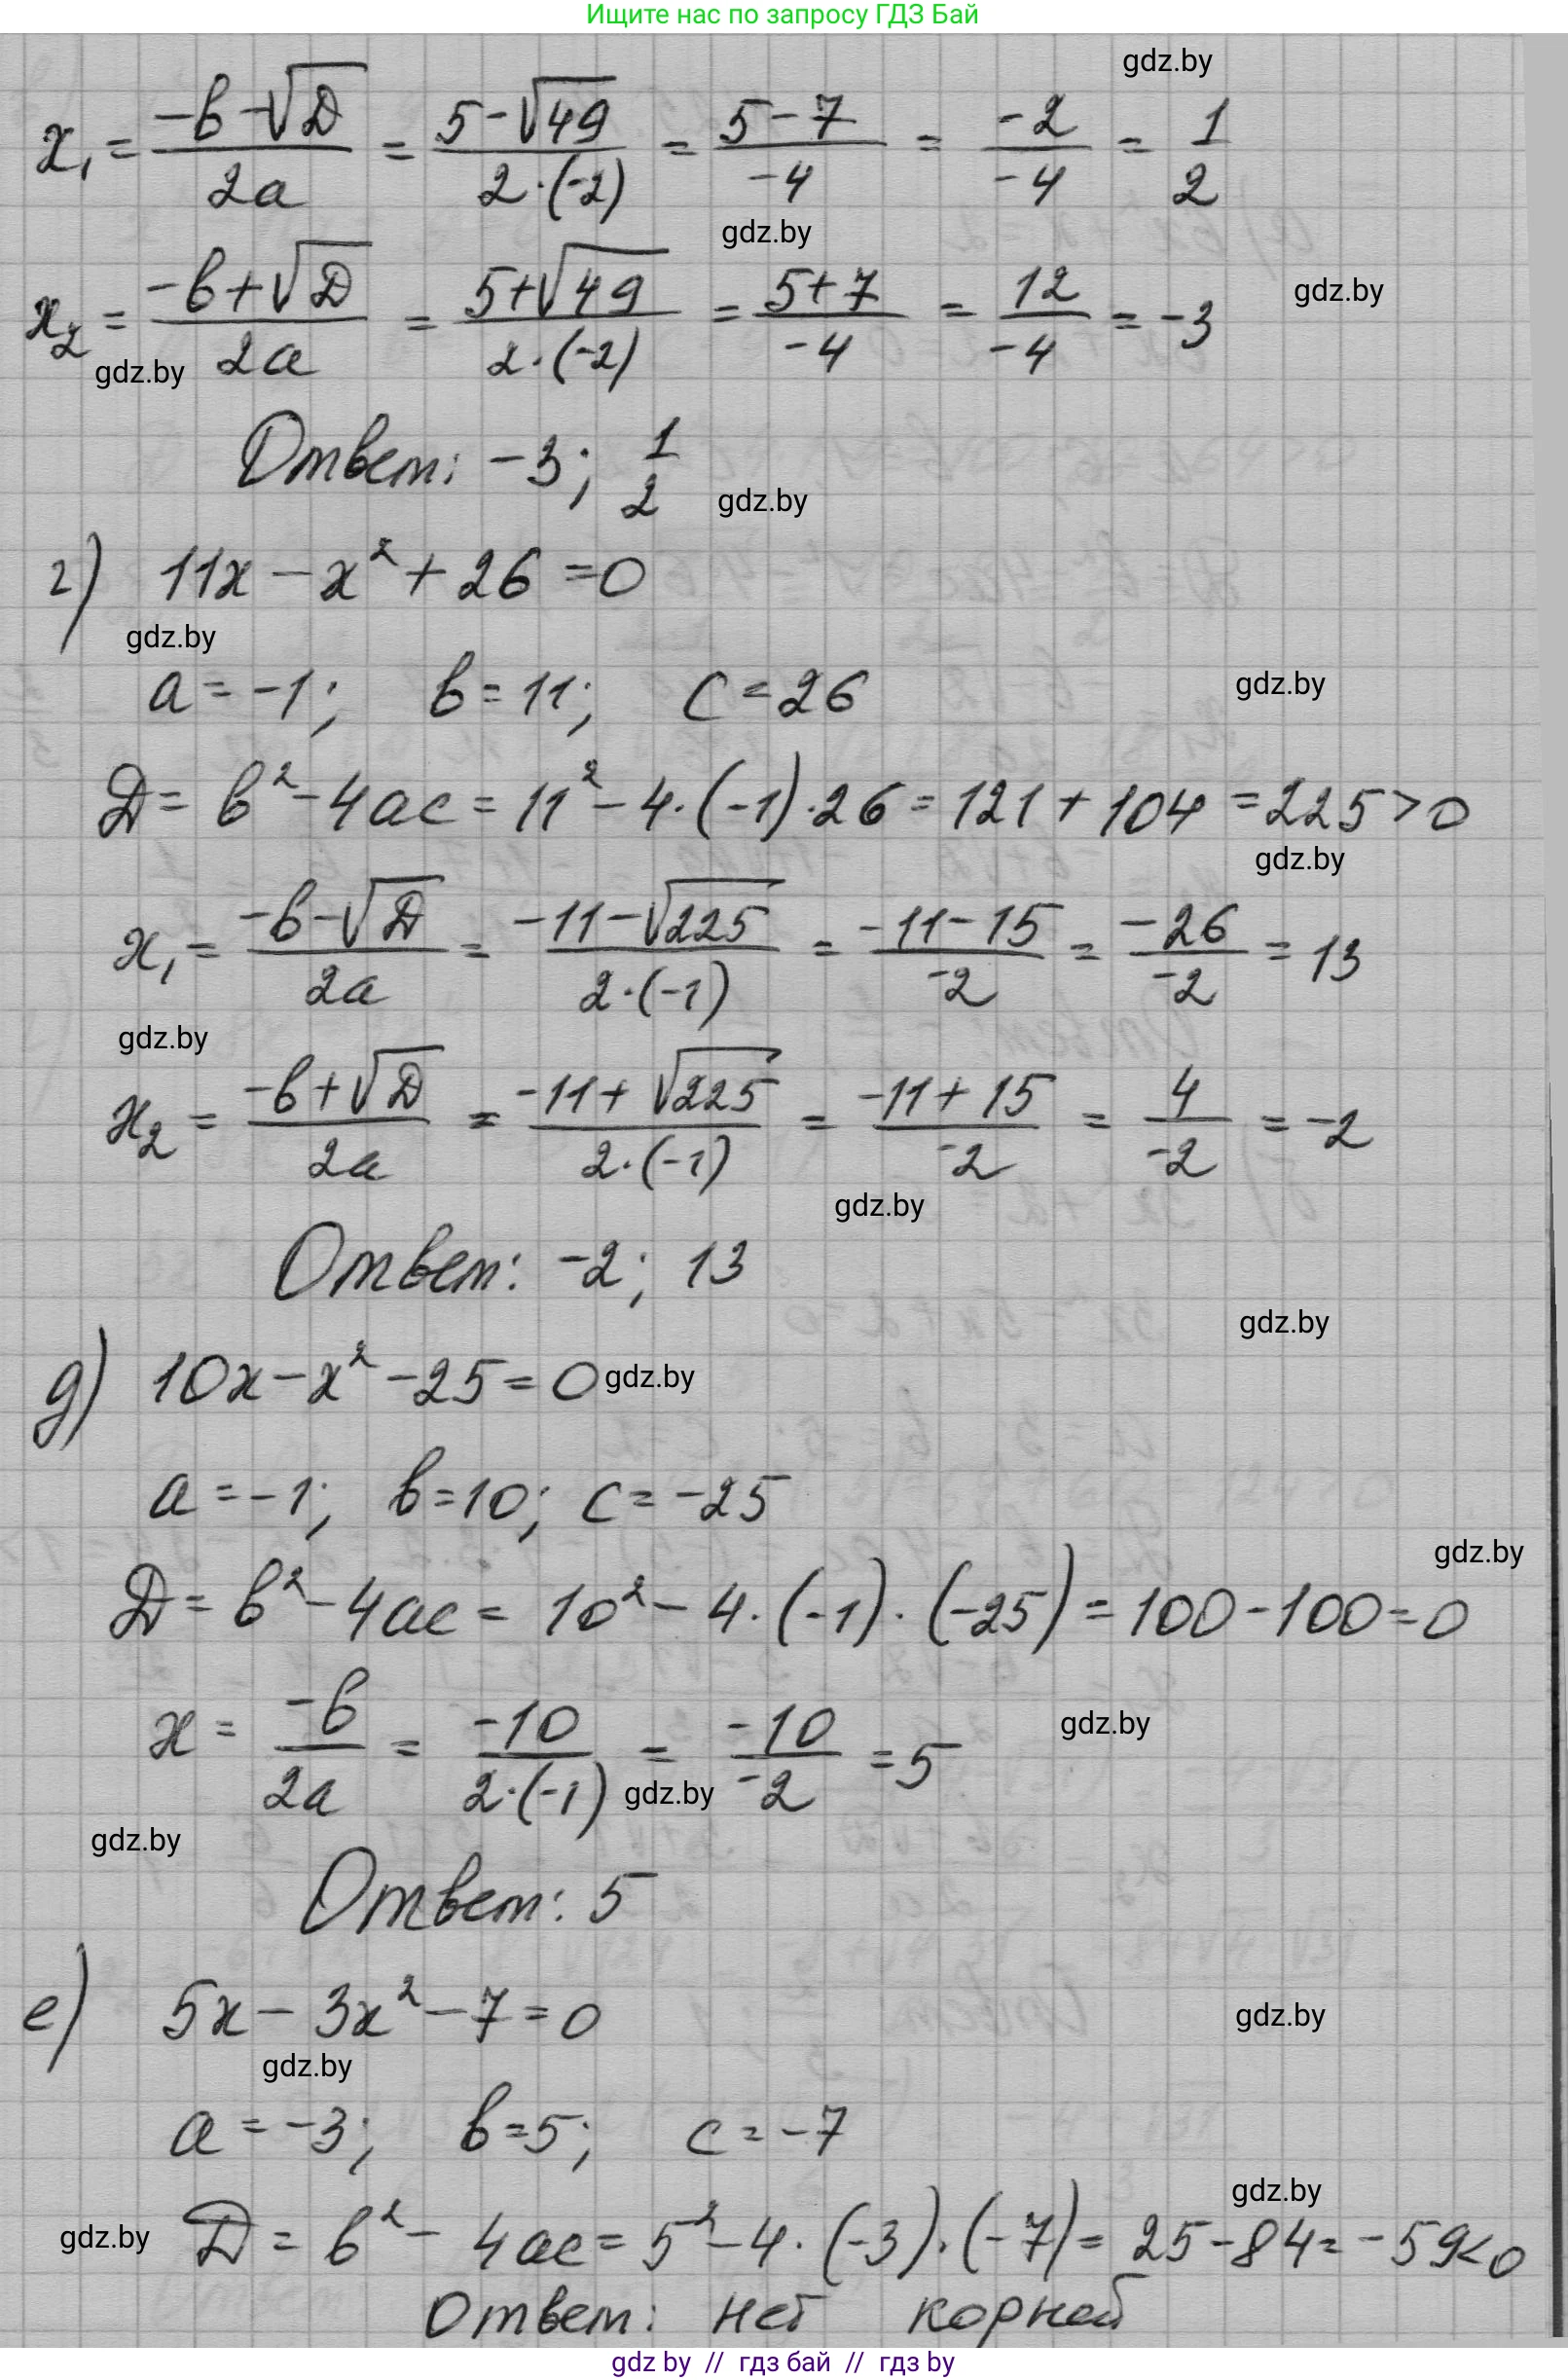 Ищите нас по запросу ГДЗ Бай
gdz.by
x₁ = (-b - √D)/(2a) = (5 - √49)/(2·(-2)) = (5 - 7)/(-4) = (-2)/(-4) = 1/2
gdz.by
x₂ = (-b + √D)/(2a) = (5 + √49)/(2·(-2)) = (5 + 7)/(-4) = 12/(-4) = -3
gdz.by
gdz.by
Ответ: -3; 1/2
gdz.by
г) 11x - x² + 26 = 0
gdz.by
a = -1; b = 11; c = 26
gdz.by
D = b² - 4ac = 11² - 4·(-1)·26 = 121 + 104 = 225 > 0
gdz.by
x₁ = (-b - √D)/(2a) = (-11 - √225)/(2·(-1)) = (-11 - 15)/(-2) = (-26)/(-2) = 13
gdz.by
x₂ = (-b + √D)/(2a) = (-11 + √225)/(2·(-1)) = (-11 + 15)/(-2) = 4/(-2) = -2
gdz.by
Ответ: -2; 13
gdz.by
д) 10x - x² - 25 = 0
gdz.by
a = -1; b = 10; c = -25
gdz.by
D = b² - 4ac = 10² - 4·(-1)·(-25) = 100 - 100 = 0
x = (-b)/(2a) = (-10)/(2·(-1)) = (-10)/(-2) = 5
gdz.by
gdz.by
gdz.by
Ответ: 5
е) 5x - 3x² - 7 = 0
gdz.by
gdz.by
a = -3; b = 5; c = -7
gdz.by
gdz.by
D = b² - 4ac = 5² - 4·(-3)·(-7) = 25 - 84 = -59 < 0
Ответ: нет корней
gdz.by // гдз бай // гдз by